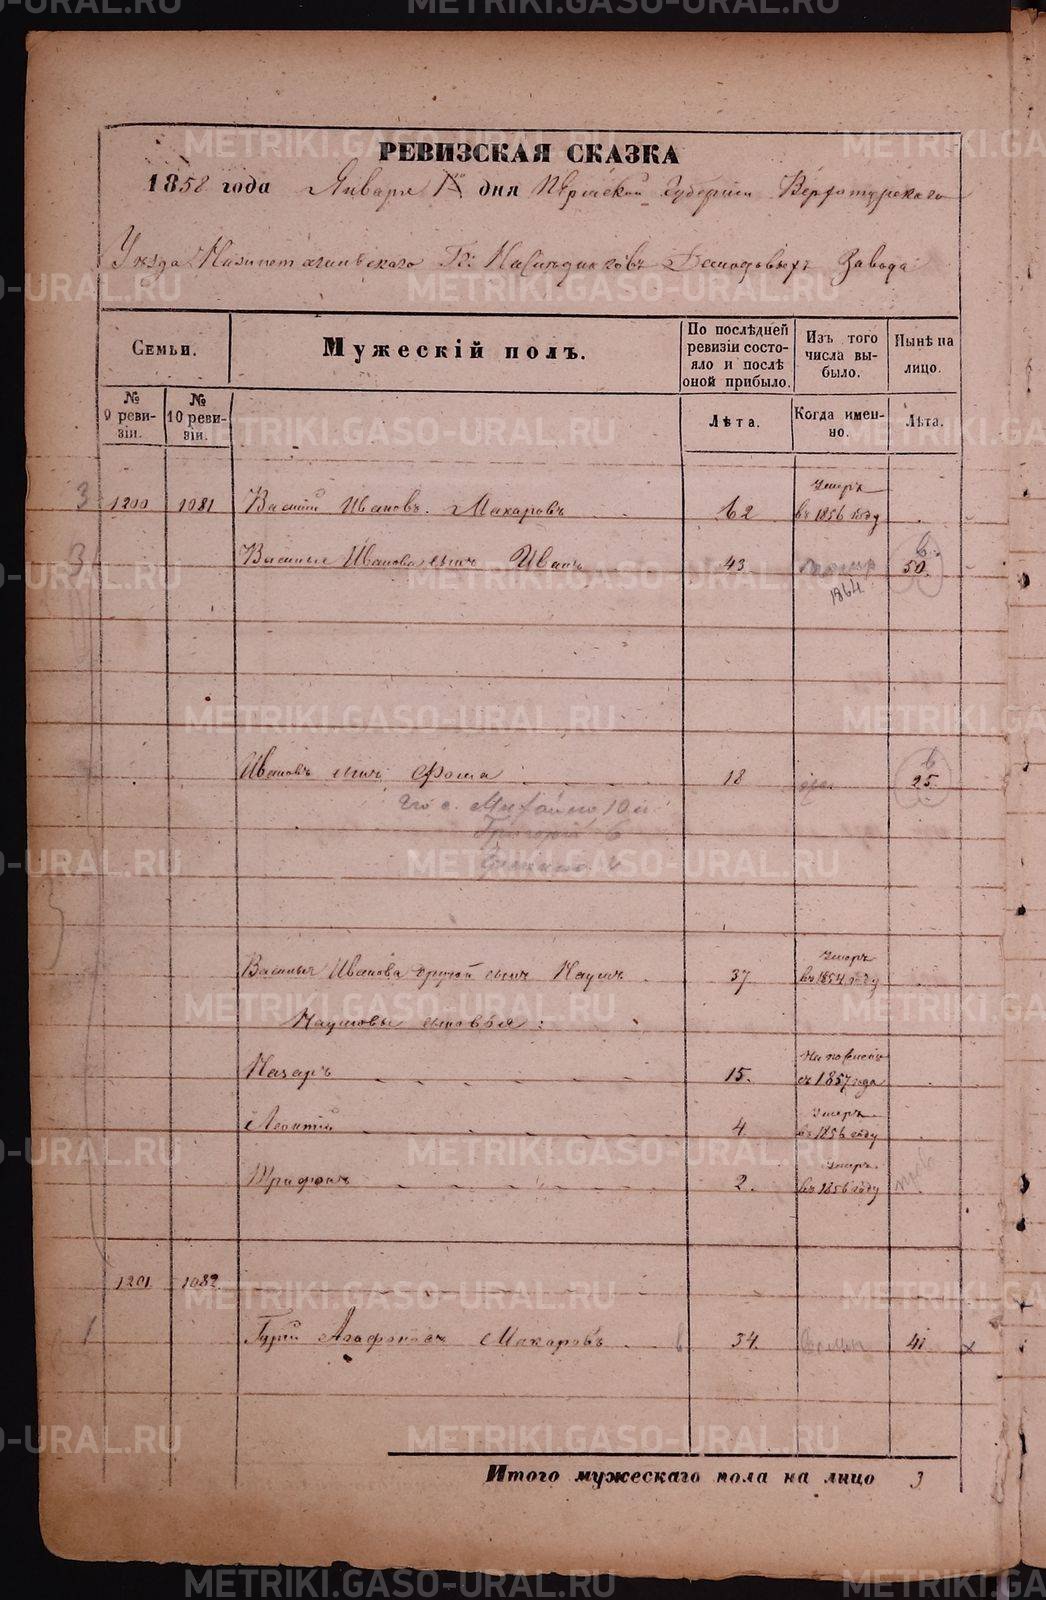 РЕВИЗСКАЯ СКАЗКА
1858 года Января 1го дня Пермской Губернии Верхотурскаго
Уѣзда Нижнетагильскаго Гг: Наслѣдниковъ Демидовыхъ Завода
Семьи.
Мужескій полъ.
По послѣдней ревизіи состояло и послѣ оной прибыло.
Изъ того числа выбыло.
Нынѣ на лицо.
№ 9 ревизіи.
№ 10 ревизіи.
Лѣта.
Когда именно.
Лѣта.
3 1200 1081 Василій Ивановъ Макаровъ 62 Умеръ въ 1856 году
3 Василья Иванова сынъ Иванъ 43 1864 50
Ивановъ сынъ Фома 18 25
Его с. Михайло 10
Григорій 6
Василья Иванова другой сынъ Наумъ 37 Умеръ въ 1854 году
Наумовы сыновья:
Назаръ 15. съ 1857 года
Леонтій 4 Умеръ въ 1856 году
Трифонъ 2. Умеръ въ 1856 году
1201 1082
1 Гурій Агафоновъ Макаровъ 34. 41
Итого мужескаго пола на лицо 3
METRIKI.GASO-URAL.RU